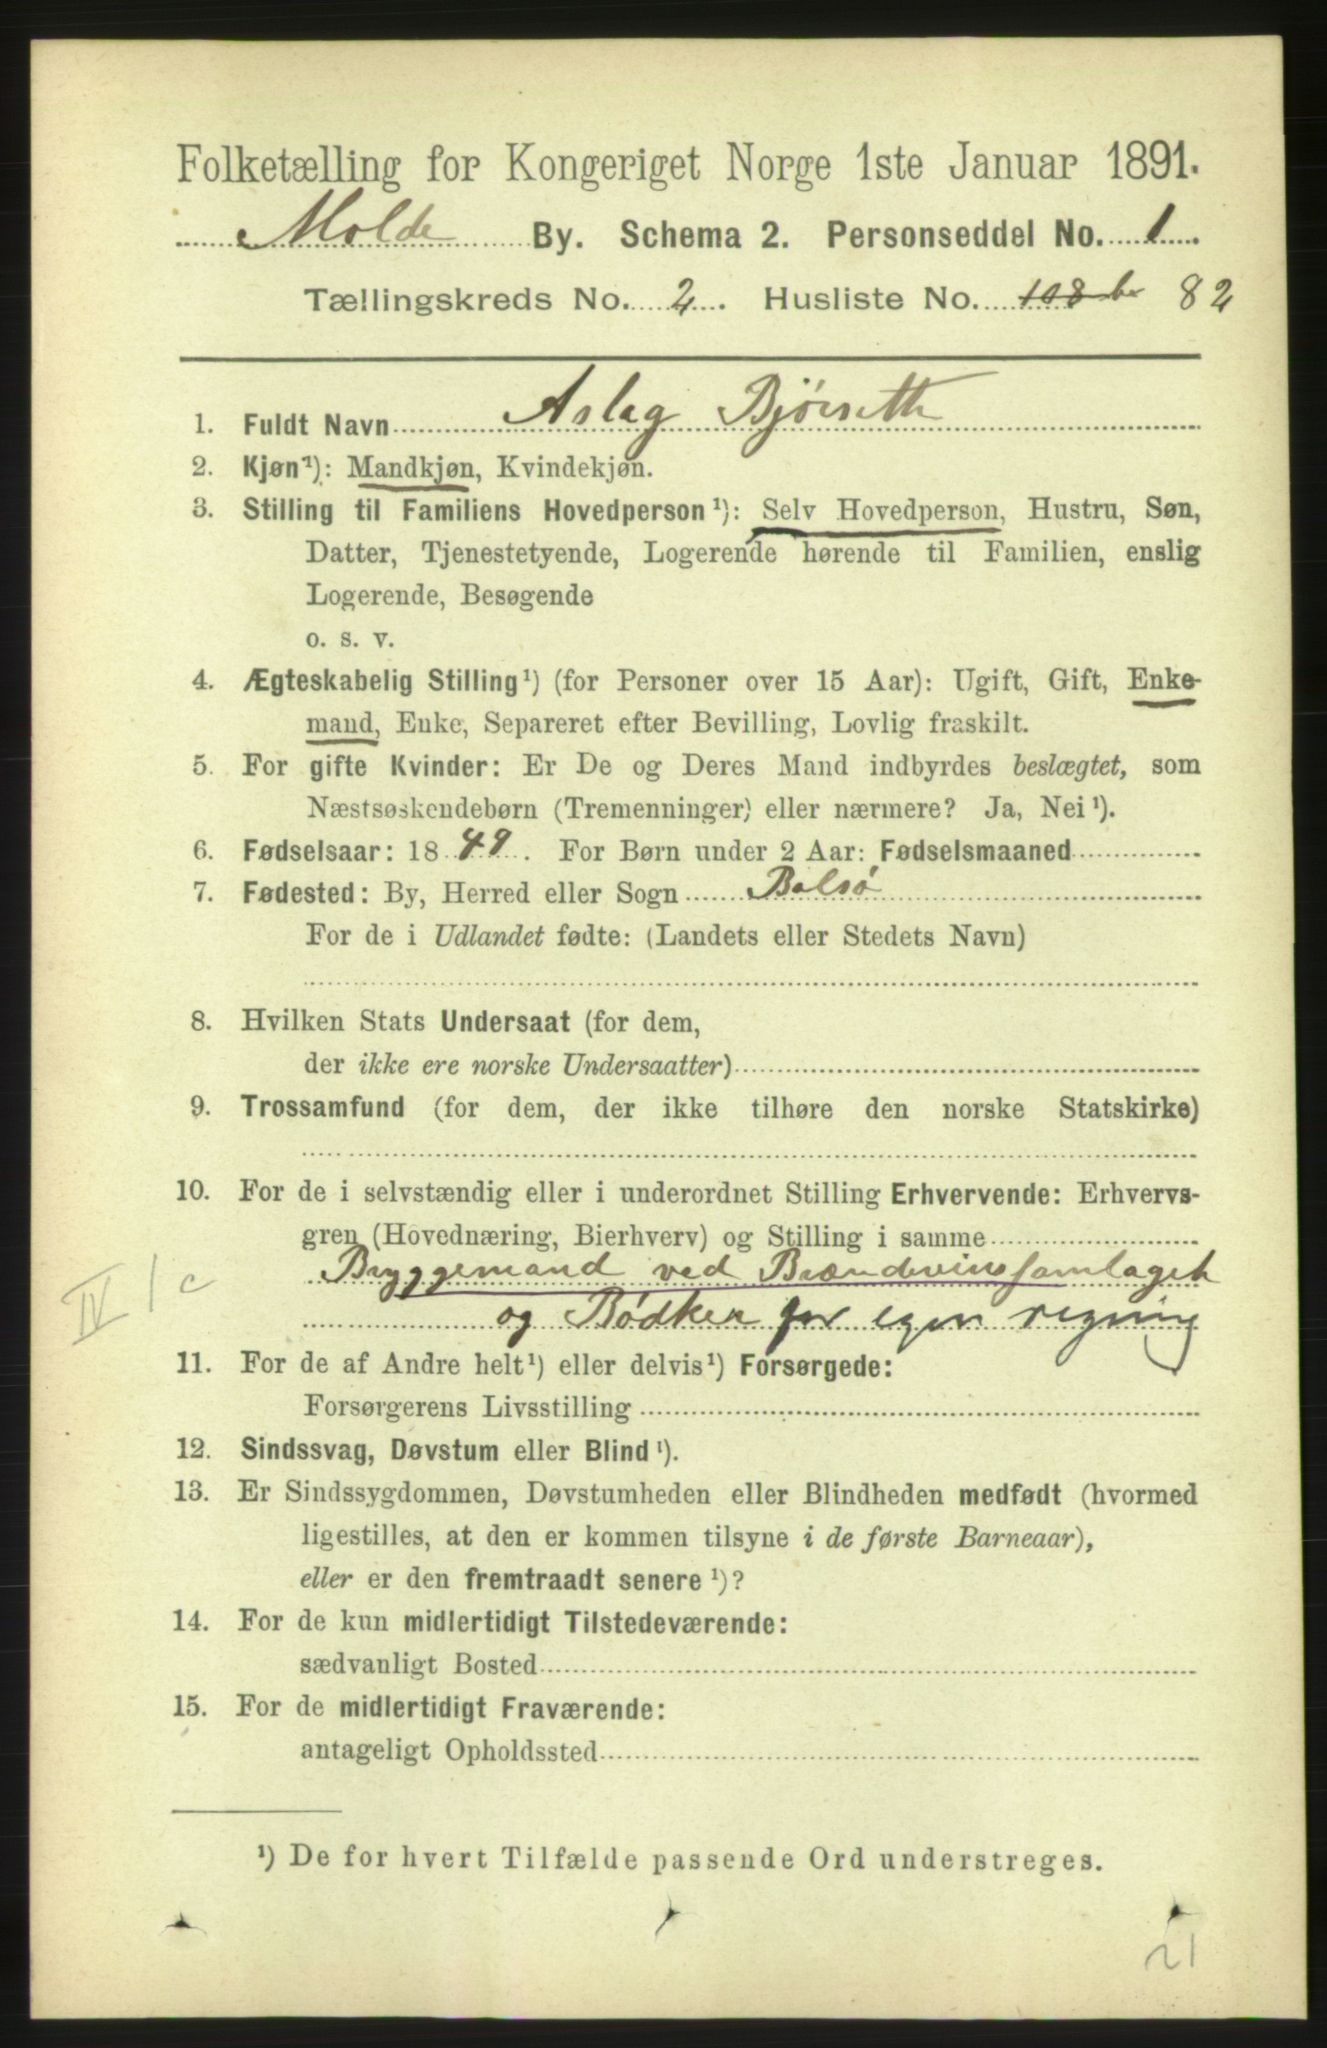 Folketælling for Kongeriget Norge 1ste Januar 1891.
Molde By. Schema 2. Personseddel No. 1
Tællingskreds No. 2. Husliste No. 108 b 82
1. Fuldt Navn Aslag Bjørseth
2. Kjøn¹): Mandkjøn, Kvindekjøn.
3. Stilling til Familiens Hovedperson¹): Selv Hovedperson, Hustru, Søn,
Datter, Tjenestetyende, Logerende hørende til Familien, enslig
Logerende, Besøgende
o. s. v.
4. Ægteskabelig Stilling¹) (for Personer over 15 Aar): Ugift, Gift, Enke-
mand, Enke, Separeret efter Bevilling, Lovlig fraskilt.
5. For gifte Kvinder: Er De og Deres Mand indbyrdes beslægtet, som
Næstsøskendebørn (Tremenninger) eller nærmere? Ja, Nei¹).
6. Fødselsaar: 1849. For Børn under 2 Aar: Fødselsmaaned
7. Fødested: By, Herred eller Sogn Bolsø
For de i Udlandet fødte: (Landets eller Stedets Navn)
8. Hvilken Stats Undersaat (for dem,
der ikke ere norske Undersaatter)
9. Trossamfund (for dem, der ikke tilhøre den norske Statskirke)
10. For de i selvstændig eller i underordnet Stilling Erhvervende: Erhvervs-
gren (Hovednæring, Bierhverv) og Stilling i samme
Bryggemand ved Brændevinssamlaget
IV 1 c
og Bødker for egen regning
11. For de af Andre helt¹) eller delvis¹) Forsørgede:
Forsørgerens Livsstilling
12. Sindssvag, Døvstum eller Blind¹).
13. Er Sindssygdommen, Døvstumheden eller Blindheden medfødt (hvormed
ligestilles, at den er kommen tilsyne i de første Barneaar),
eller er den fremtraadt senere¹)?
14. For de kun midlertidigt Tilstedeværende:
sædvanligt Bosted
15. For de midlertidigt Fraværende:
antageligt Opholdssted
¹) De for hvert Tilfælde passende Ord understreges.
21